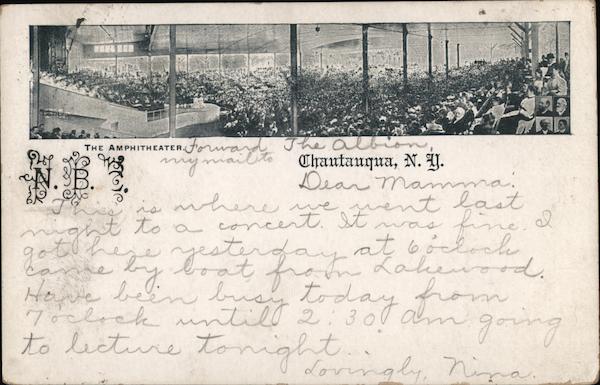 THE AMPHITHEATER.
Forward The Albion,
my mail to
Chautauqua, N. Y.
N. B. I.
Dear Mamma:
This is where we went last
night to a concert. It was fine. I
got here yesterday at 6 o'clock
came by boat from Lakewood.
Have been busy today from
7 o'clock until 2:30 am going
to lecture tonight.
Lovingly, Nina.